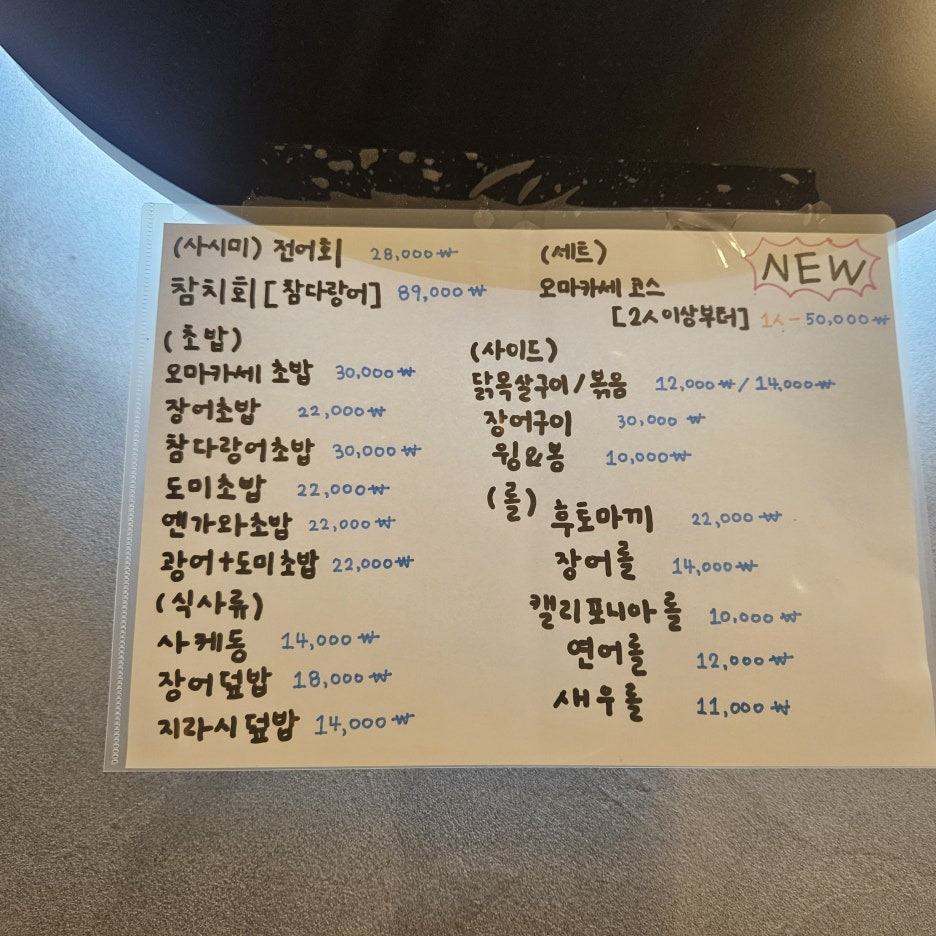 (사시미) 전어회 28,000₩
참치회 [참다랑어] 89,000₩
(초밥)
오마카세 초밥 30,000₩
장어초밥 22,000₩
참다랑어초밥 30,000₩
도미초밥 22,000₩
엔가와초밥 22,000₩
광어+도미초밥 22,000₩
(식사류)
사케동 14,000₩
장어덮밥 18,000₩
지라시덮밥 14,000₩
(세트)
NEW
오마카세 코스
[2人이상부터] 1人-50,000₩
(사이드)
닭목살구이/볶음 12,000₩/14,000₩
장어구이 30,000₩
윙&봉 10,000₩
(롤)
후토마끼 22,000₩
장어롤 14,000₩
캘리포니아롤 10,000₩
연어롤 12,000₩
새우롤 11,000₩